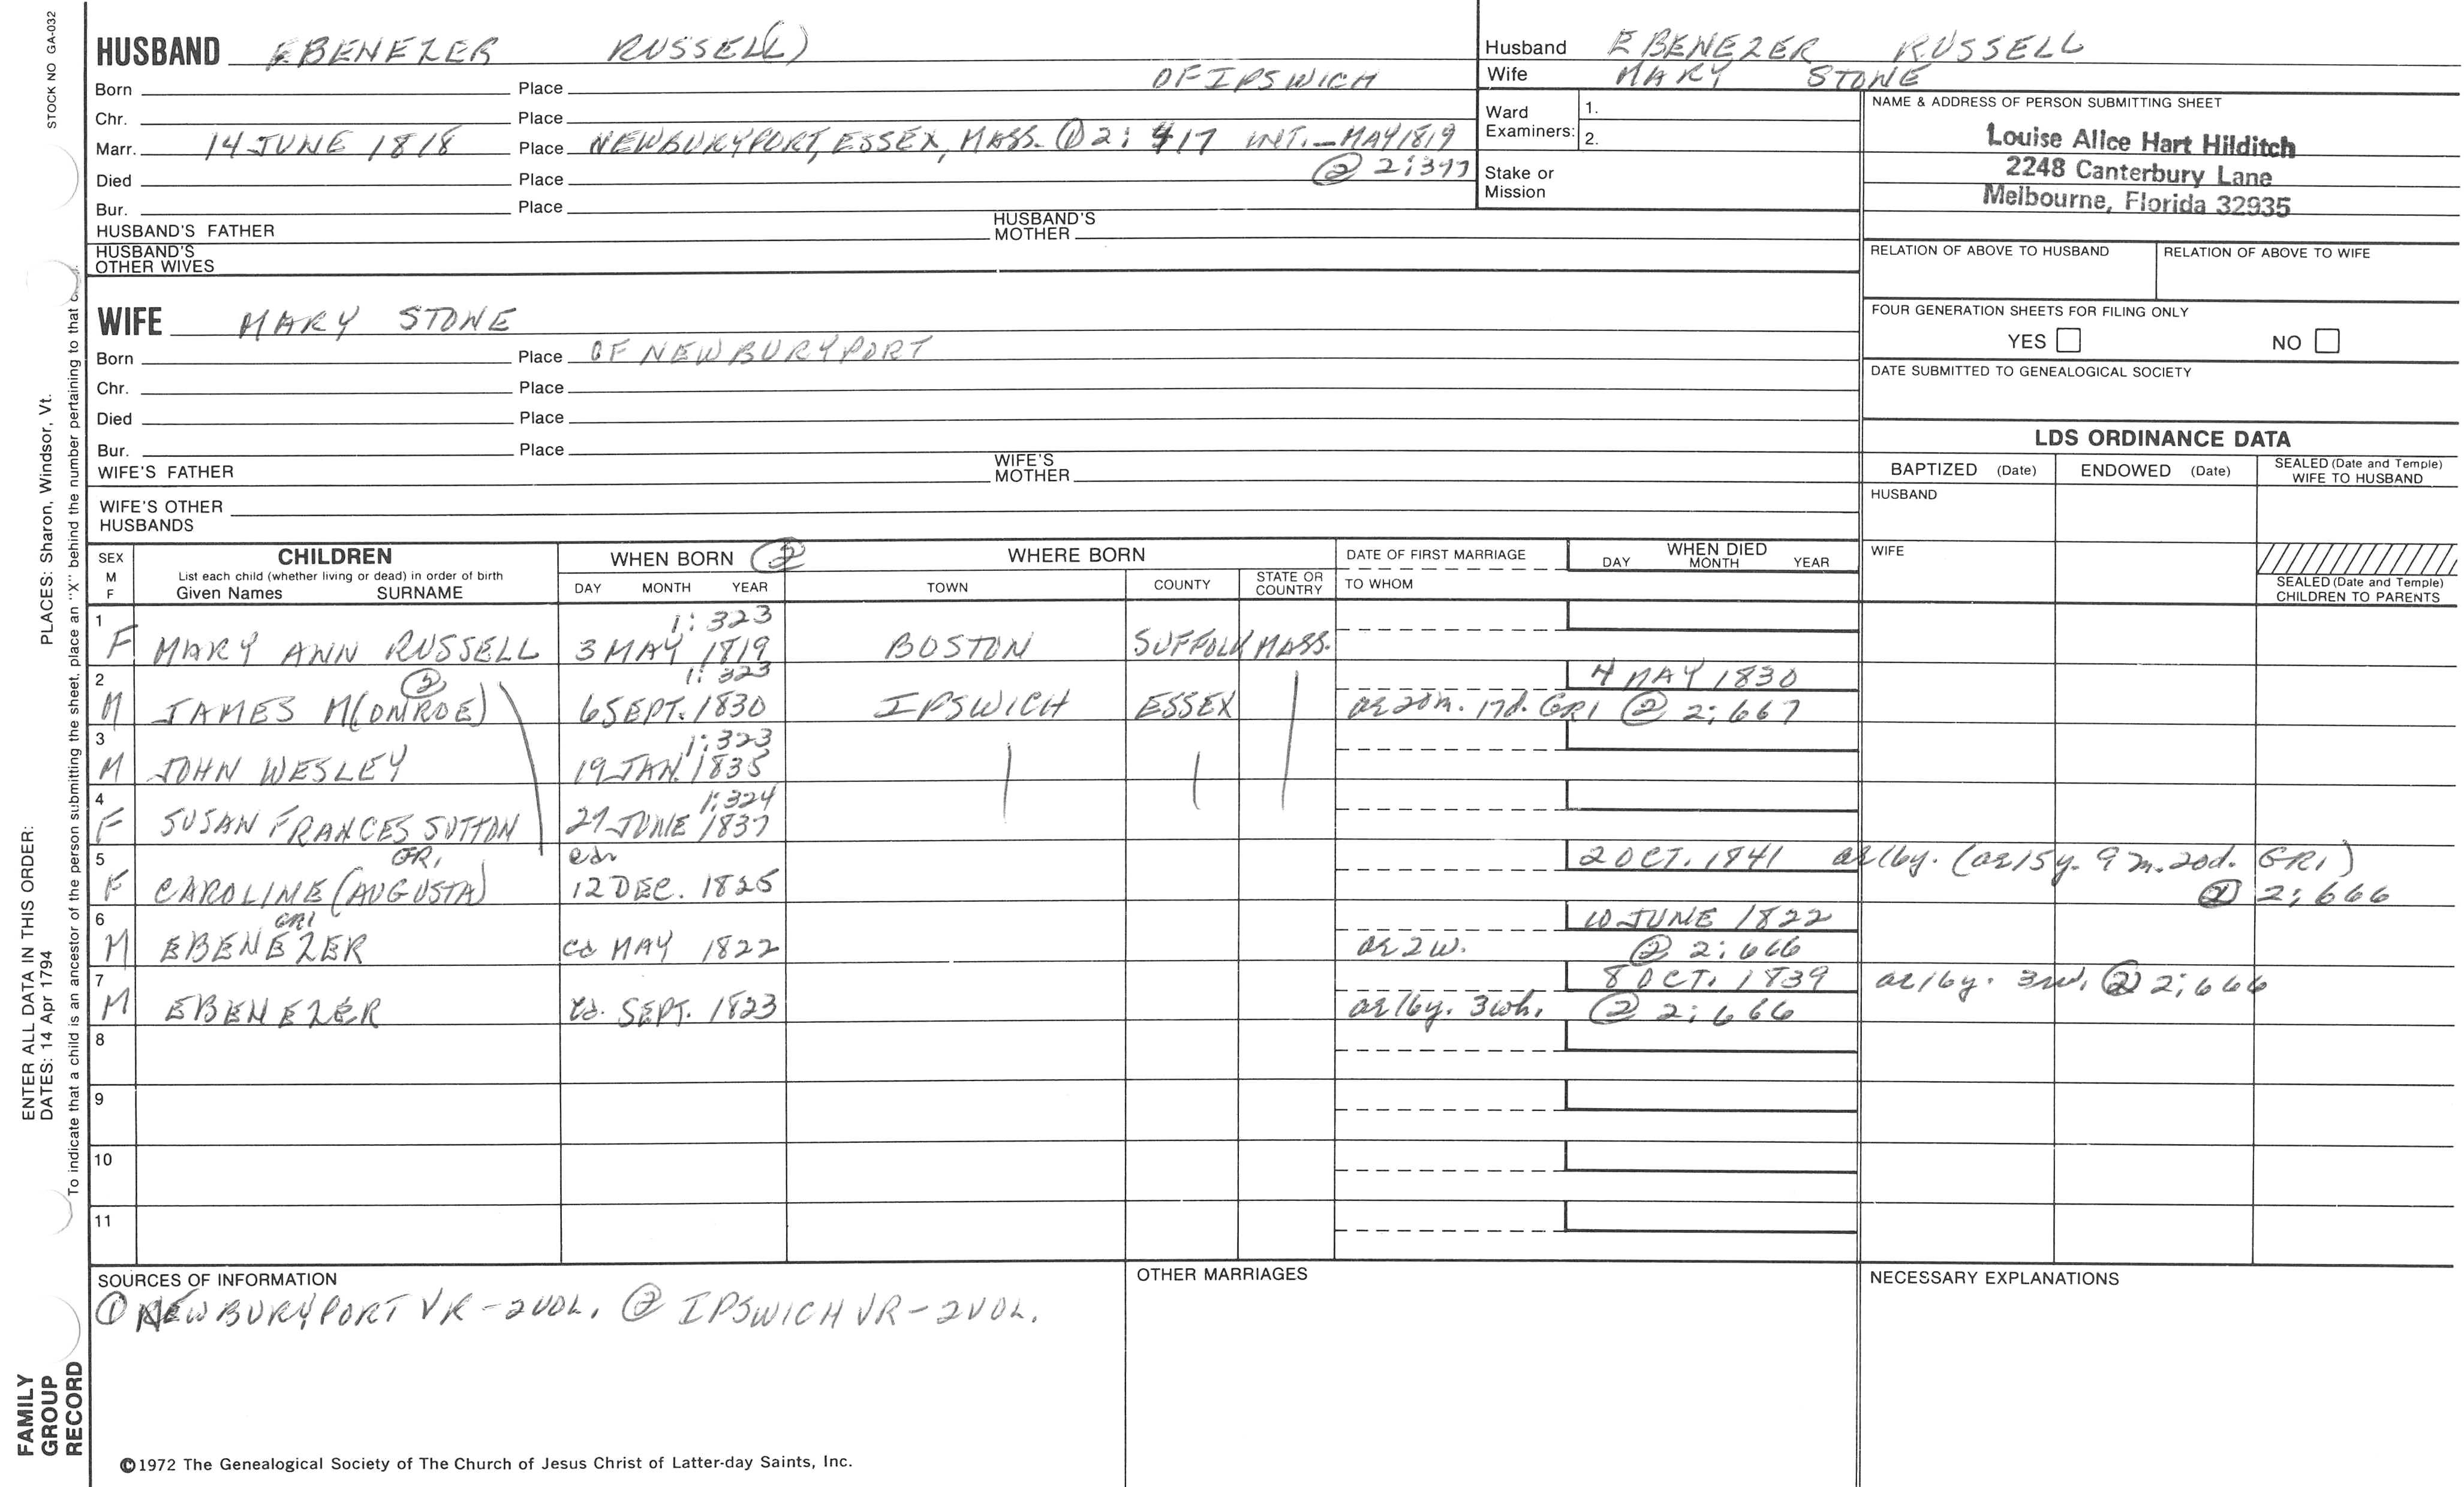 STOCK NO GA-032
HUSBAND EBENEZER RUSSELL)
Born Place OF IPSWICH
Chr. Place
Marr. 14 JUNE 1818 Place NEWBURYPORT, ESSEX, MASS. ① 2: 417 INT. - MAY 1819
② 2:377
Died Place
Bur. Place
HUSBAND'S FATHER HUSBAND'S MOTHER
HUSBAND'S OTHER WIVES
Husband EBENEZER RUSSELL
Wife MARY STONE
Ward Examiners: 1.
2.
Stake or Mission
NAME & ADDRESS OF PERSON SUBMITTING SHEET
Louise Alice Hart Hilditch
2248 Canterbury Lane
Melbourne, Florida 32935
RELATION OF ABOVE TO HUSBAND RELATION OF ABOVE TO WIFE
FOUR GENERATION SHEETS FOR FILING ONLY
YES NO
DATE SUBMITTED TO GENEALOGICAL SOCIETY
WIFE MARY STONE
Born Place OF NEWBURYPORT
Chr. Place
Died Place
Bur. Place
WIFE'S FATHER WIFE'S MOTHER
WIFE'S OTHER HUSBANDS
LDS ORDINANCE DATA
BAPTIZED (Date) ENDOWED (Date) SEALED (Date and Temple) WIFE TO HUSBAND
HUSBAND
WIFE
SEALED (Date and Temple) CHILDREN TO PARENTS
SEX M F
CHILDREN
List each child (whether living or dead) in order of birth
Given Names SURNAME
WHEN BORN ②
DAY MONTH YEAR
WHERE BORN
TOWN COUNTY STATE OR COUNTRY
DATE OF FIRST MARRIAGE
TO WHOM
WHEN DIED
DAY MONTH YEAR
1 1:323
F MARY ANN RUSSELL 3 MAY 1819 BOSTON SUFFOLK MASS.
2 ② 1:323 4 MAY 1830
M JAMES M(ONROE) 6 SEPT. 1830 IPSWICH ESSEX ae 20m. 17d. GR1 ② 2:667
3 1:323
M JOHN WESLEY 19 JAN. 1835
4 1:324
F SUSAN FRANCES SUTTON 27 JUNE 1837
5 GR1 2 OCT. 1841 ae 16y. (ae 15y. 9m. 20d. GR1)
F CAROLINE (AUGUSTA) 12 DEC. 1825 ② 2:666
6 GR1 10 JUNE 1822
M EBENEZER ca MAY 1822 ae 2w. ② 2:666
7 8 OCT. 1839 ae 16y. 3w. ② 2:666
M EBENEZER ca. SEPT. 1823 ae 16y. 3wk. ② 2:666
8
9
10
11
SOURCES OF INFORMATION
① NEWBURYPORT VR - 2 VOL. ② IPSWICH VR - 2 VOL.
OTHER MARRIAGES
NECESSARY EXPLANATIONS
©1972 The Genealogical Society of The Church of Jesus Christ of Latter-day Saints, Inc.
FAMILY GROUP RECORD
ENTER ALL DATA IN THIS ORDER:
DATES: 14 Apr 1794
PLACES: Sharon, Windsor, Vt.
To indicate that a child is an ancestor of the person submitting the sheet, place an "X" behind the number pertaining to that